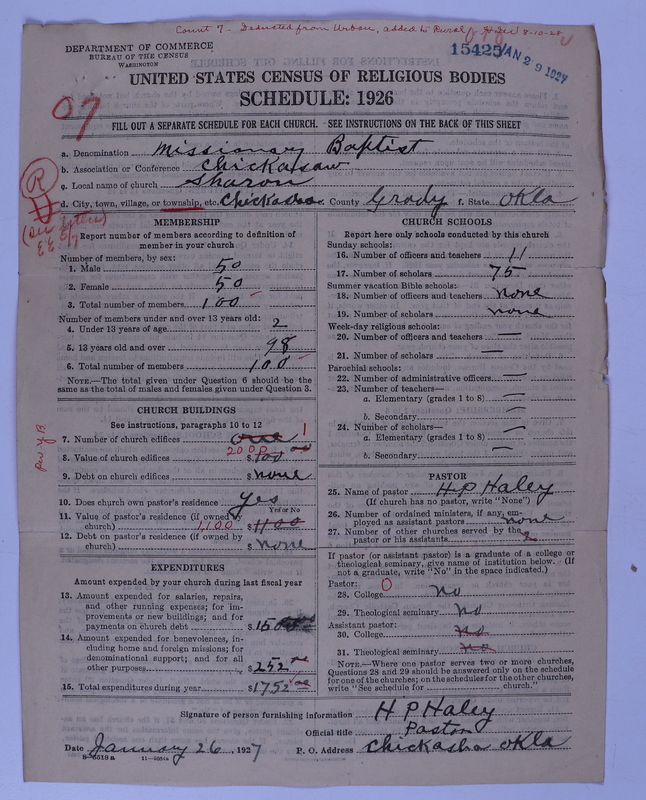 Count 7 - Deducted from Urban, added to Rural 8-10-28
DEPARTMENT OF COMMERCE
BUREAU OF THE CENSUS
WASHINGTON
15425
JAN 29 1927
UNITED STATES CENSUS OF RELIGIOUS BODIES
SCHEDULE: 1926
07
FILL OUT A SEPARATE SCHEDULE FOR EACH CHURCH. SEE INSTRUCTIONS ON THE BACK OF THIS SHEET
a. Denomination Missionary Baptist
b. Association or Conference Chickasaw
c. Local name of church Sharon
R
d. City, town, village, or township, etc. Chickasha e. County Grady f. State Okla
MEMBERSHIP
Report number of members according to definition of member in your church
Number of members, by sex:
1. Male 50
2. Female 50
3. Total number of members 100
Number of members under and over 13 years old:
4. Under 13 years of age 2
5. 13 years old and over 98
6. Total number of members 100
NOTE.—The total given under Question 6 should be the same as the total of males and females given under Question 3.
CHURCH BUILDINGS
See instructions, paragraphs 10 to 12
7. Number of church edifices one 1
2000
8. Value of church edifices $ 100
9. Debt on church edifices $ none
10. Does church own pastor's residence? yes
Yes or No
11. Value of pastor's residence (if owned by church) 1,100 $ 1100
12. Debt on pastor's residence (if owned by church) $ none
EXPENDITURES
Amount expended by your church during last fiscal year
13. Amount expended for salaries, repairs, and other running expenses; for improvements or new buildings; and for payments on church debt $ 1500
14. Amount expended for benevolences, including home and foreign missions; for denominational support; and for all other purposes $ 252 00
15. Total expenditures during year $ 1752 00
CHURCH SCHOOLS
Report here only schools conducted by this church
Sunday schools:
16. Number of officers and teachers 11
17. Number of scholars 75
Summer vacation Bible schools:
18. Number of officers and teachers none
19. Number of scholars none
Week-day religious schools:
20. Number of officers and teachers —
21. Number of scholars —
Parochial schools:
22. Number of administrative officers —
23. Number of teachers—
a. Elementary (grades 1 to 8) —
b. Secondary —
24. Number of scholars—
a. Elementary (grades 1 to 8) —
b. Secondary —
PASTOR
25. Name of pastor H P Haley
(If church has no pastor, write "None")
26. Number of ordained ministers, if any, employed as assistant pastors none
27. Number of other churches served by the pastor or his assistants 2
If pastor (or assistant pastor) is a graduate of a college or theological seminary, give name of institution below. (If not a graduate, write "No" in the space indicated.)
Pastor: 0
28. College no
29. Theological seminary no
Assistant pastor:
30. College no
31. Theological seminary no
NOTE.—Where one pastor serves two or more churches, Questions 28 and 29 should be answered only on the schedule for one of the churches; on the schedules for the other churches, write "See schedule for church."
Signature of person furnishing information H P Haley
Official title Pastor
Date January 26, 1927 P. O. Address Chickasha Okla